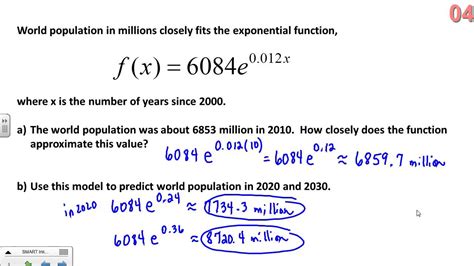 04
World population in millions closely fits the exponential function,
f(x) = 6084e^{0.012x}
where x is the number of years since 2000.
a) The world population was about 6853 million in 2010. How closely does the function
approximate this value?
6084 e^{0.012(10)} = 6084 e^{0.12} ≈ 6859.7 million
b) Use this model to predict world population in 2020 and 2030.
in 2020 6084 e^{0.24} ≈ 7734.3 million
6084 e^{0.36} ≈ 8720.4 million
SMART Ink...